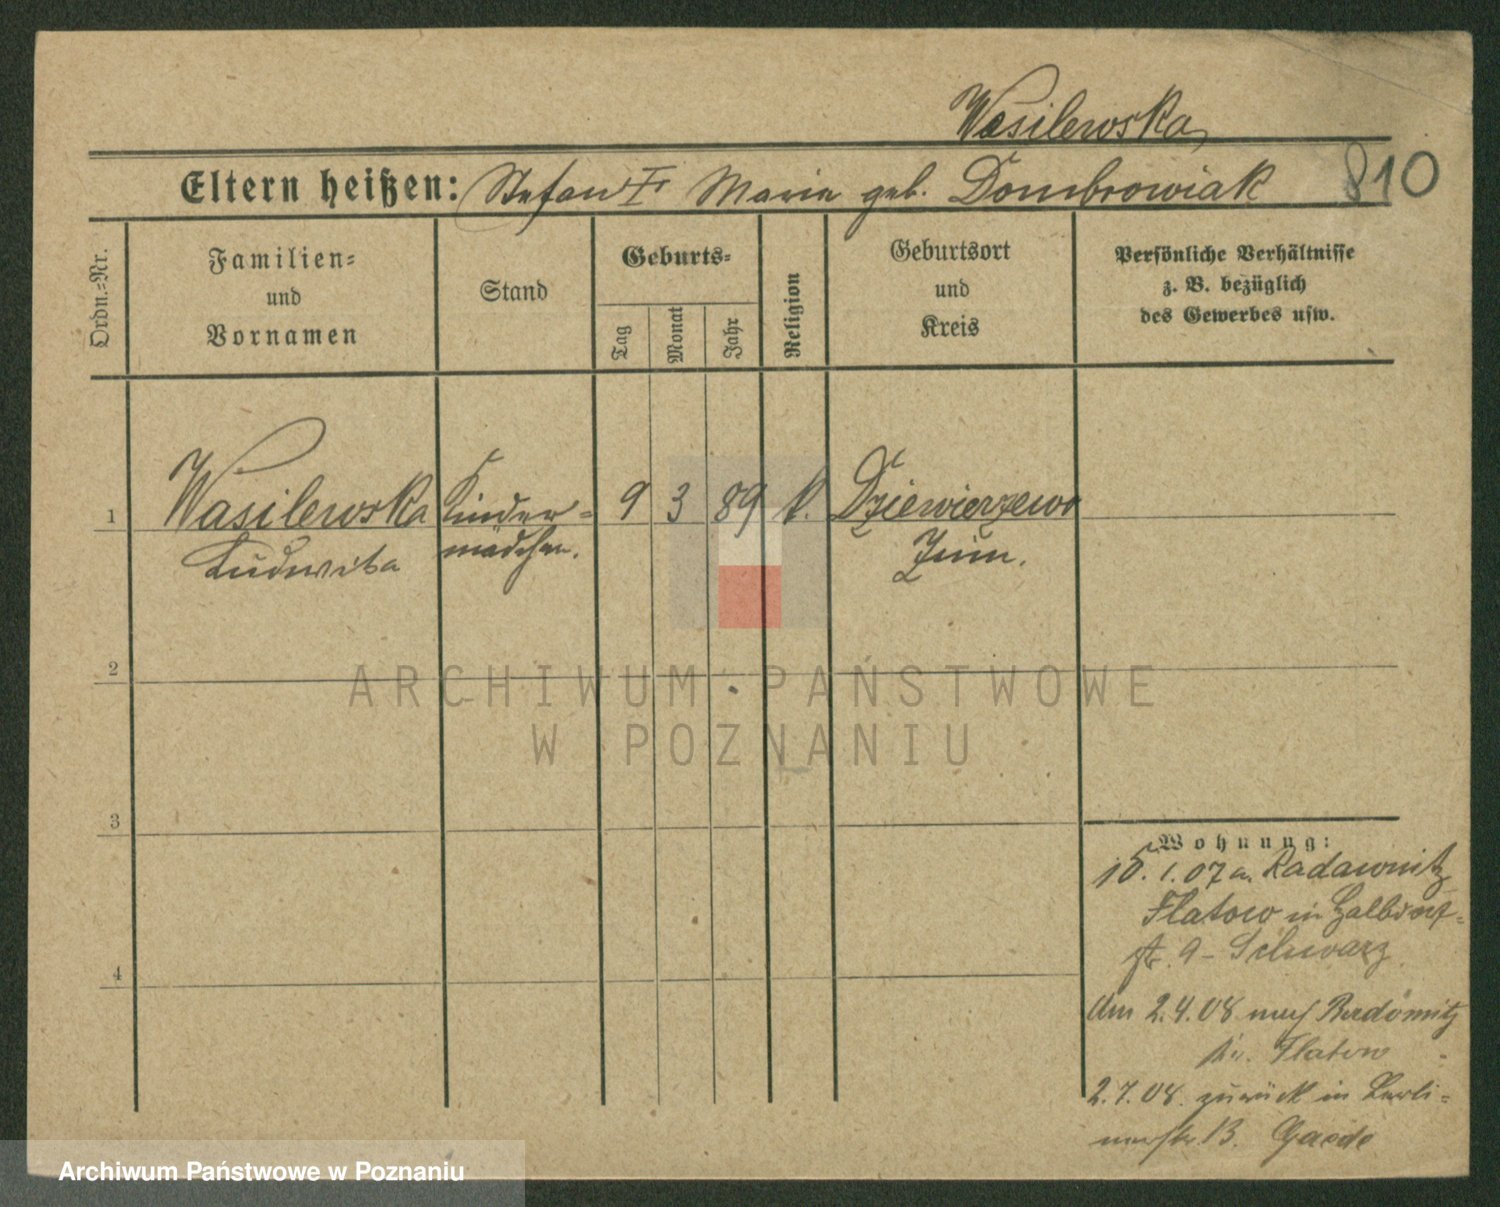 Wasilewska
810
Eltern heißen: Stefan Maria geb. Dombrowiak
Ordn.-Nr.
Familien-
und
Vornamen
Stand
Geburts-
Tag
Monat
Jahr
Religion
Geburtsort
und
Kreis
Persönliche Verhältnisse
z. B. bezüglich
des Gewerbes usw.
1 Wasilewska Kinder- 9 3 89 k. Dziewierzewo
Ludwika mädchen. Znin.
2
3
4
Wohnung:
15.1.07 a. Radawnitz
Flatow in
str. 9 - Schwarz
Am 2.4.08 nach
Kr. Flatow
2.7.08. zurück in Berli-
nerstr. 13. Gaede
ARCHIWUM PAŃSTWOWE
W POZNANIU
Archiwum Państwowe w Poznaniu